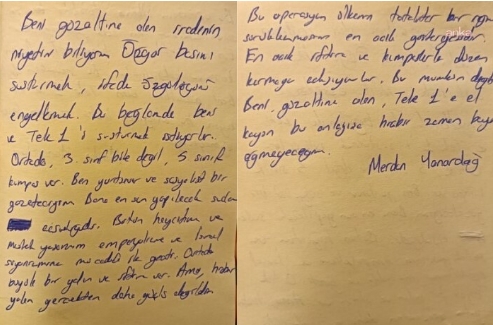 Beni gözaltına alan iradenin
niyetini biliyorum Özgür basını
susturmak, ifade özgürlüğünü
engellemek. Bu bağlamda beni
ve Tele 1'i susturmak istiyorlar.
Ortada, 3. sınıf bile değil, 5. sınıf
kumpas var. Ben yurtsever ve sosyalist bir
gazeteciyim Bana en son yapılacak suçlama
casusluktur. Bütün hayatım ve
meslek yaşamım emperyalizme ve
mücadele ile geçti. Ortada
büyük bir yalan ve iftira var. Ama, hiçbir
yalan gerçekten daha güçlü değildir.
Bu operasyon ülkenin totaliter bir rejime
en açık göstergesidir.
En açık iftira ve kumpaslarla düzen
kurmaya çalışıyorlar. Bu mümkün değil
Beni gözaltına alan, Tele 1'e el
koyan bu anlayışa hiçbir zaman boyun
eğmeyeceğim.
Merdan Yanardağ